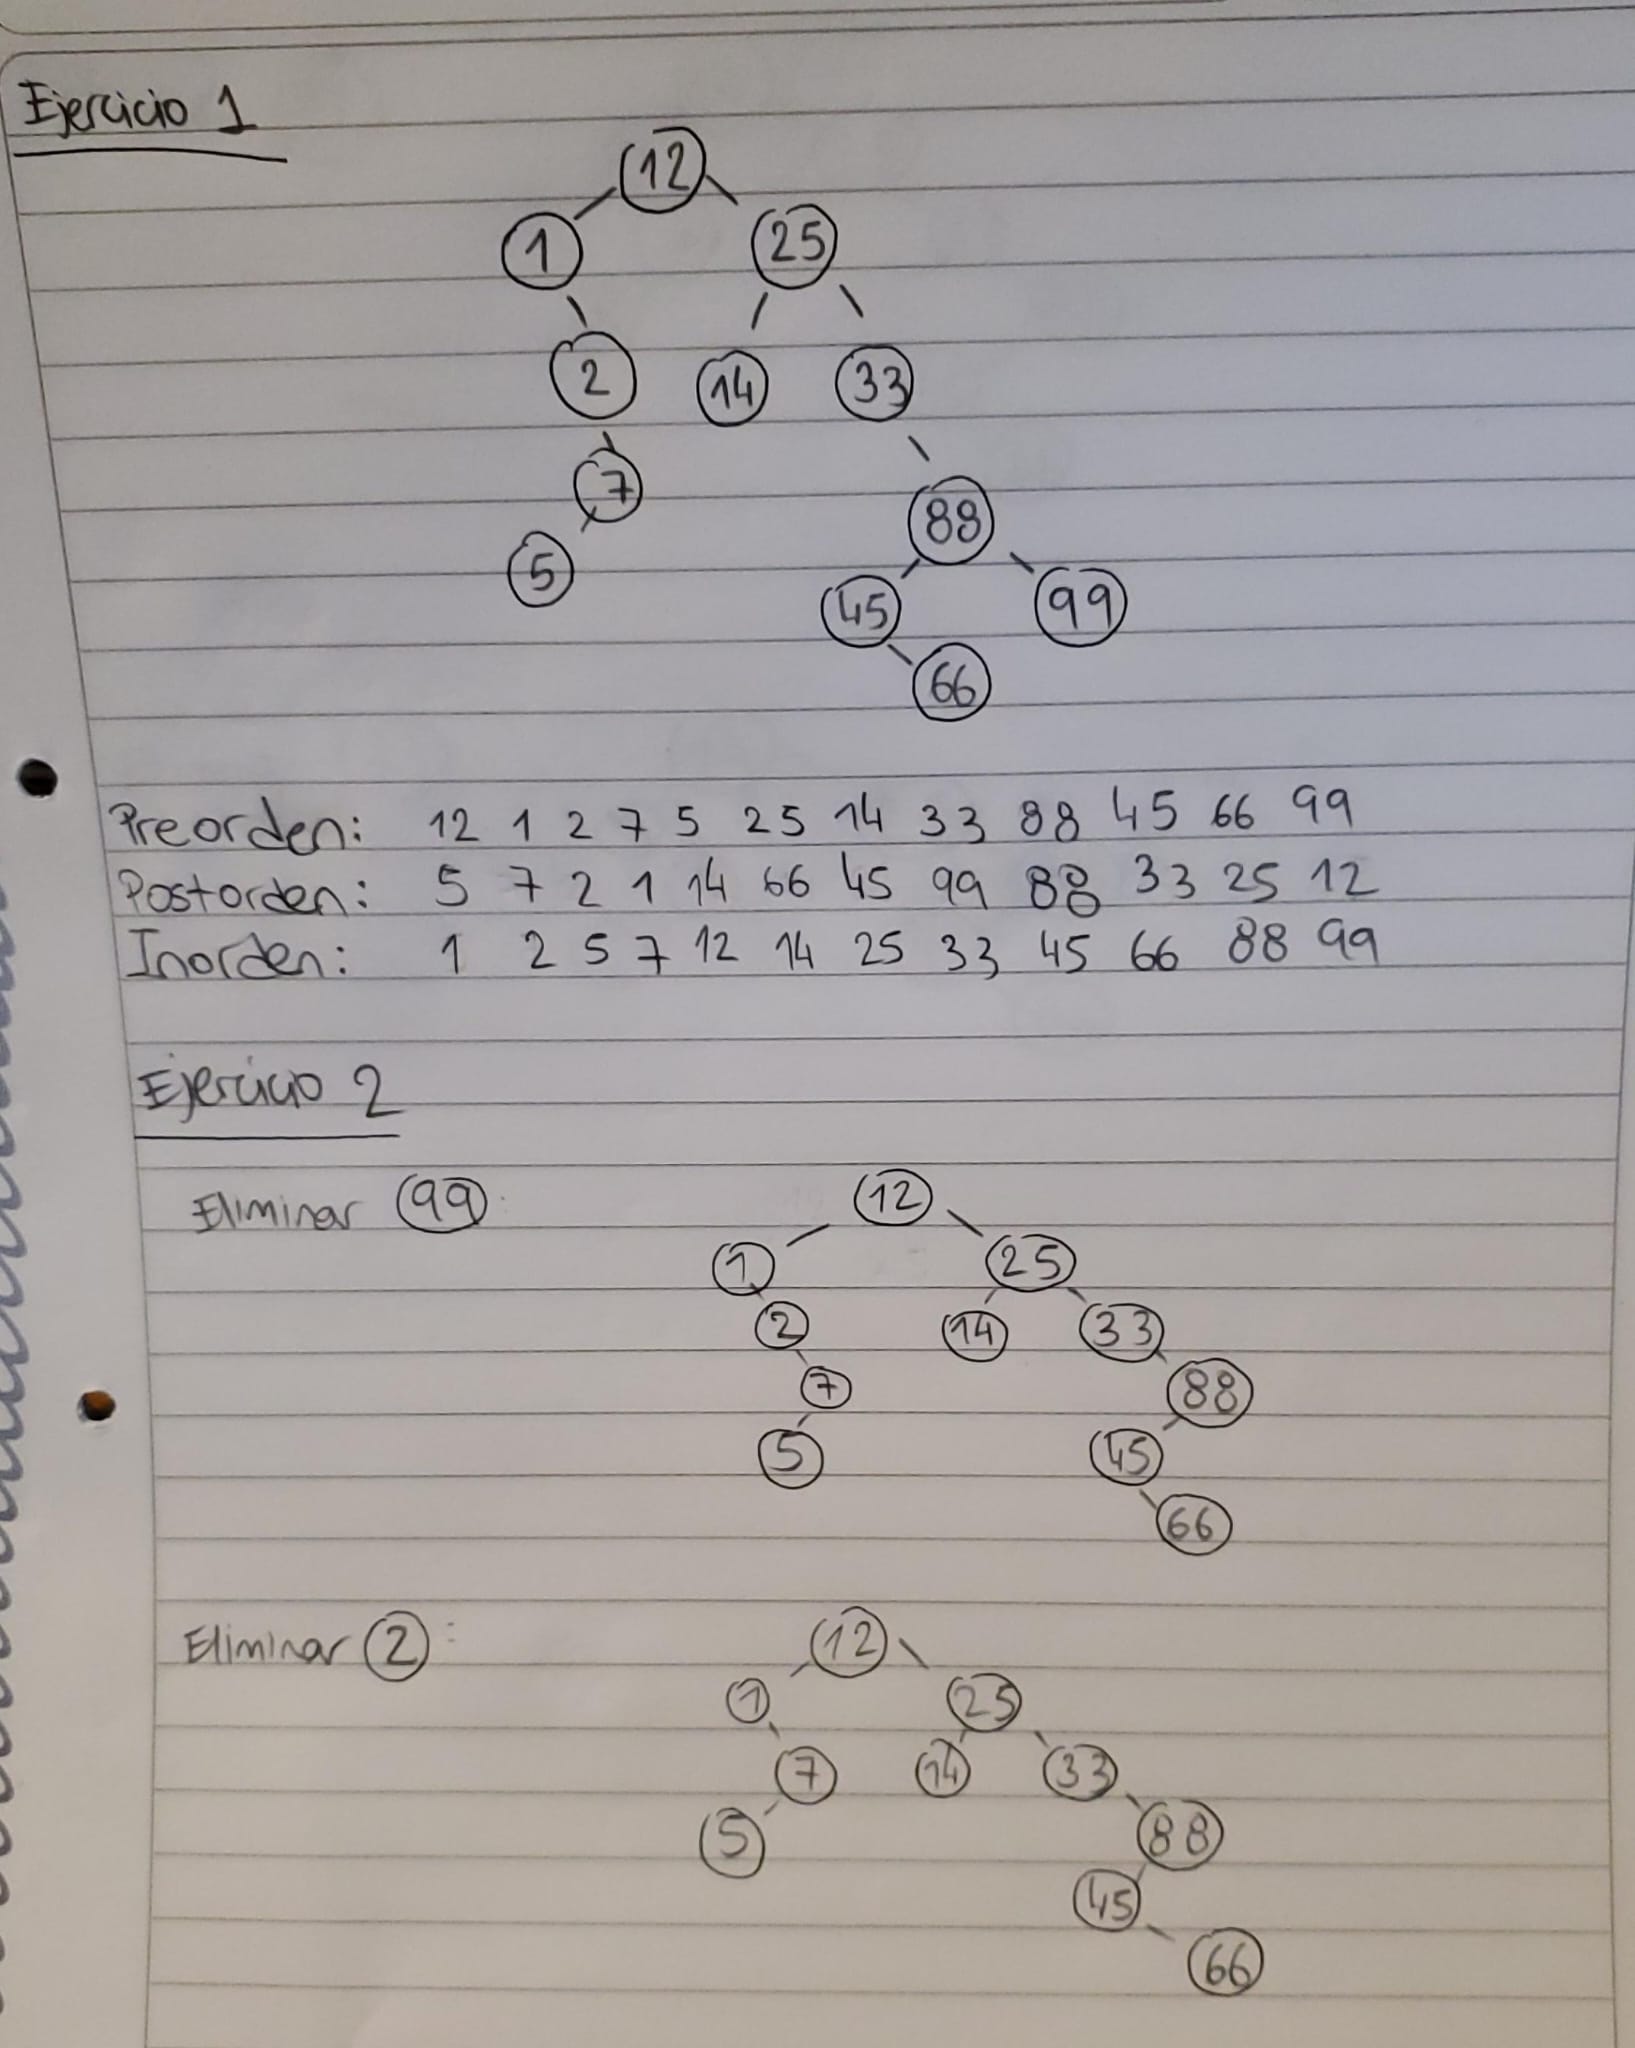 Ejercicio 1
12
1 25
2 14 33
7 88
5 45 99
66
Preorden: 12 1 2 7 5 25 14 33 88 45 66 99
Postorden: 5 7 2 1 14 66 45 99 88 33 25 12
Inorden: 1 2 5 7 12 14 25 33 45 66 88 99
Ejercicio 2
Eliminar 99: 12
1 25
2 14 33
7 88
5 45
66
Eliminar 2: 12
1 25
7 14 33
5 88
45
66